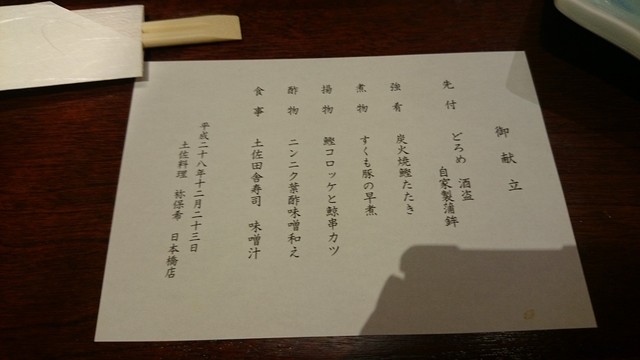 御献立
先付 どろめ 酒盗
自家製蒲鉾
強肴 炭火焼鰹たたき
煮物 すくも豚の早煮
揚物 鰹コロッケと鯨串カツ
酢物 ニンニク葉酢味噌和え
食事 土佐田舎寿司 味噌汁
平成二十八年十二月二十三日
土佐料理 祢保希 日本橋店